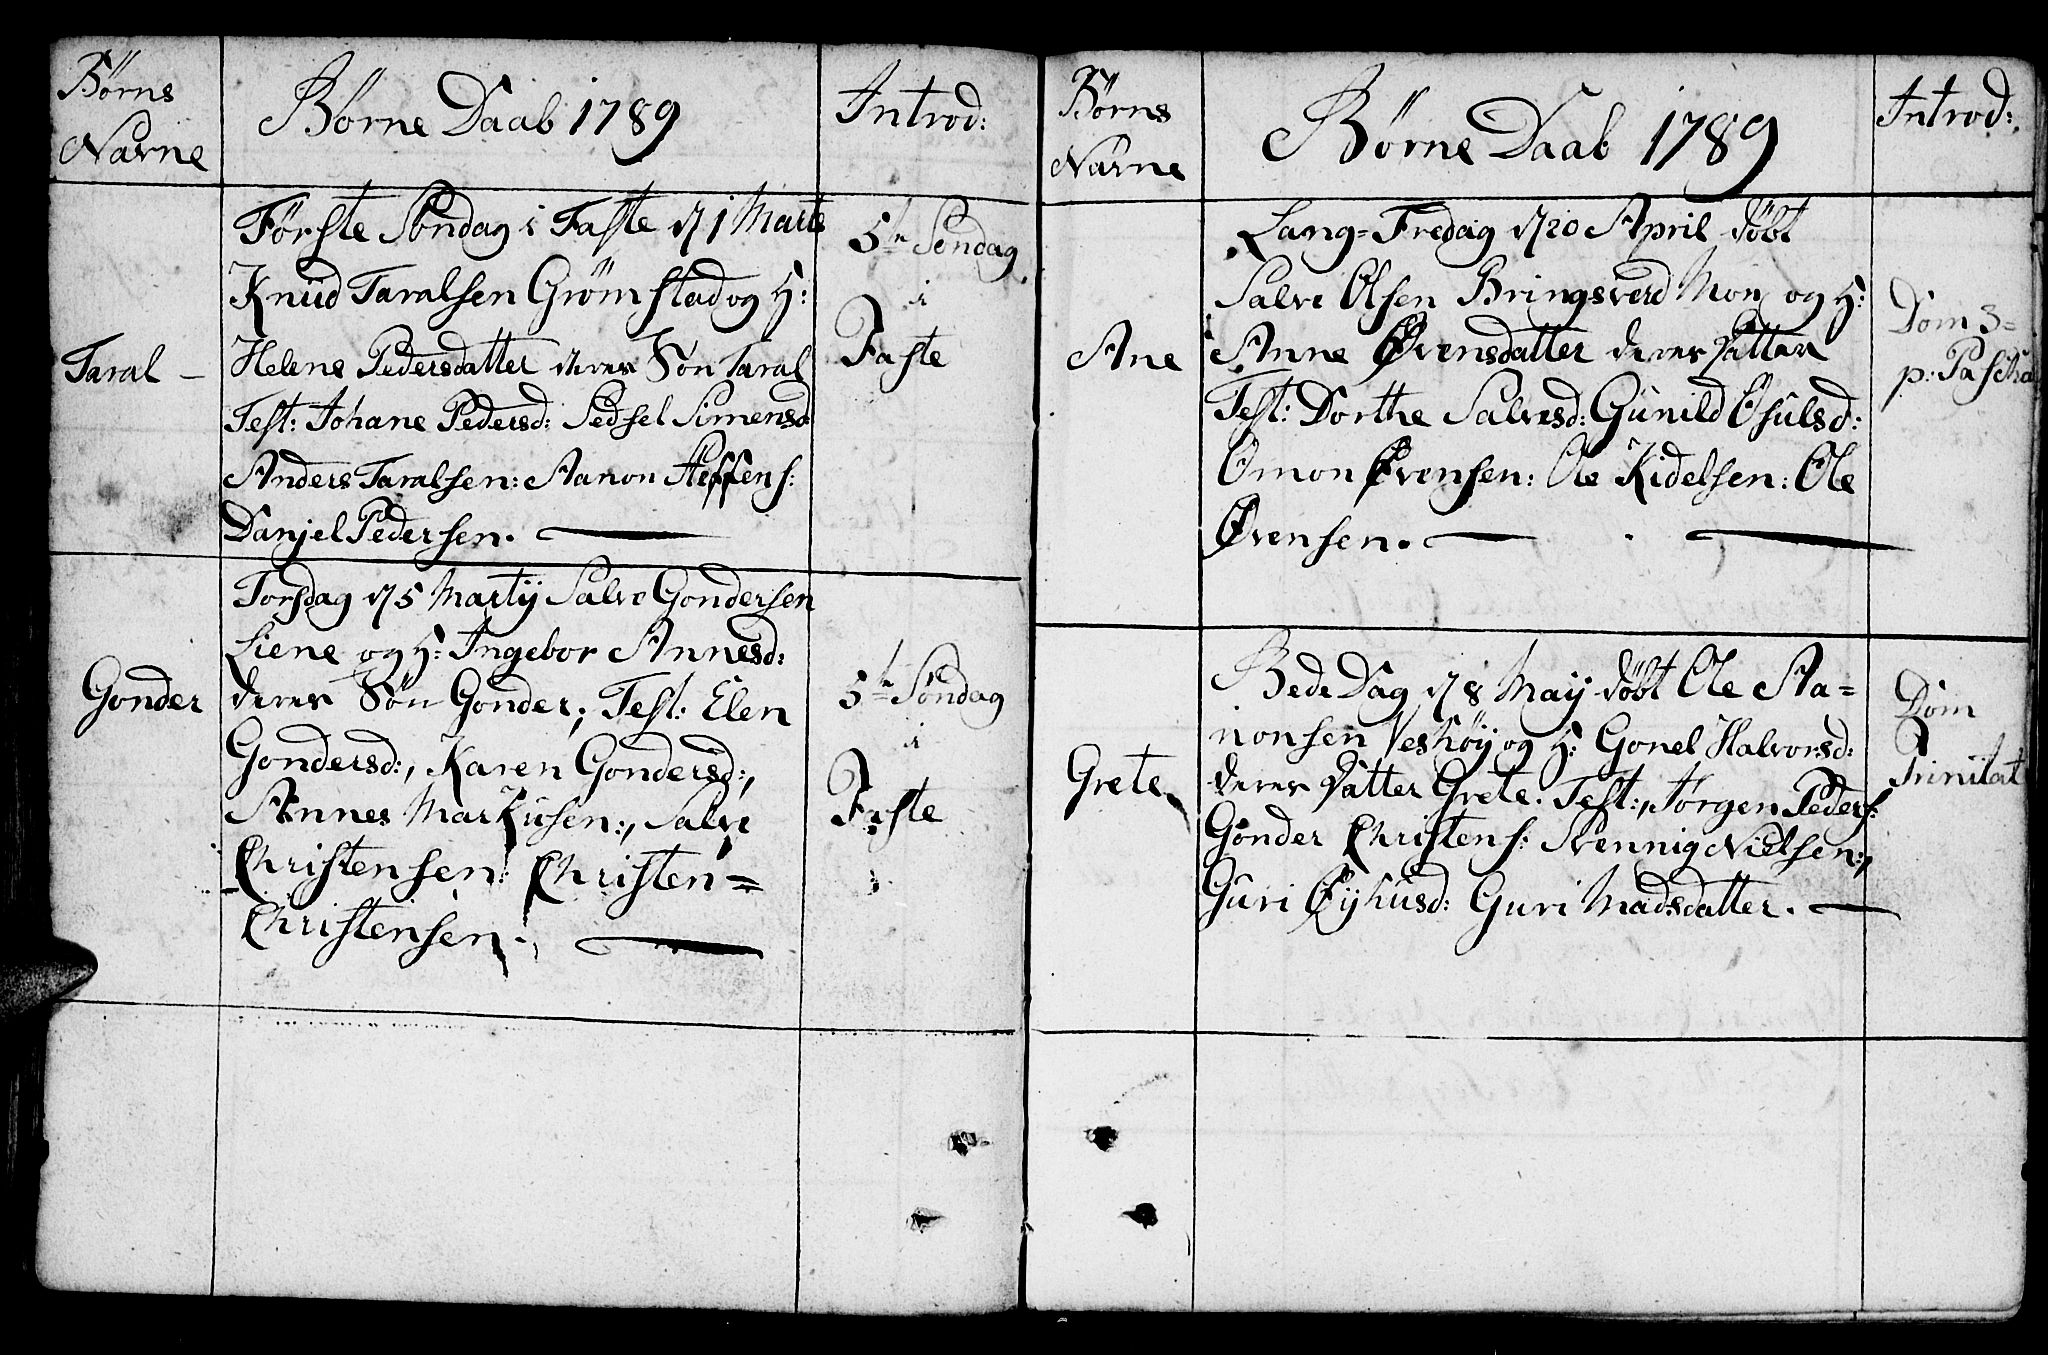 Børns
Navne
Børne Daab 1789
Introd:
Taral –
Første Søndag i Faste d 1 Marts
Knud Taralsen Grømstad og H:
Helene Pedersdatter deres Søn Taral
Test: Johane Pedersd: Sedsel Simensd:
Anders Taralsen: Aanon Steffens:
Danjel Pedersen.
5te Søndag
i
Faste
Gonder
Torsdag d 5 Martij Salve Gondersen
Liene og H: Ingebor Annesd:
deres Søn Gonder; Test: Elen
Gondersd:, Karen Gondersd:,
Annes Markusen:, Salve
Christensen: Christen=
Christensen.
5te Søndag
i
Faste
Børns
Navne
Børne Daab 1789
Introd:
Ane
Lang=Fredag d 20 April döbt
Salve Olsen Bringsverd Mon og H:
Anne Øvensdatter deres Datter
Test: Dorthe Salvesd: Gunild Osulsd:
Omon Øvensen: Ole Kidelsen: Ole
Øvensen.
Dom 3=
p: Pascha
Grete
Bede Dag d 8 May döbt Ole Aa=
nonsen Veshöy og H: Gonel Halvorsd:
deres Datter Grete. Test:, Jørgen Peders:
Gonder Christens: Svennig Nielsen:,
Guri Øyhusd: Guri Madsdatter.
Dom
Trinitat